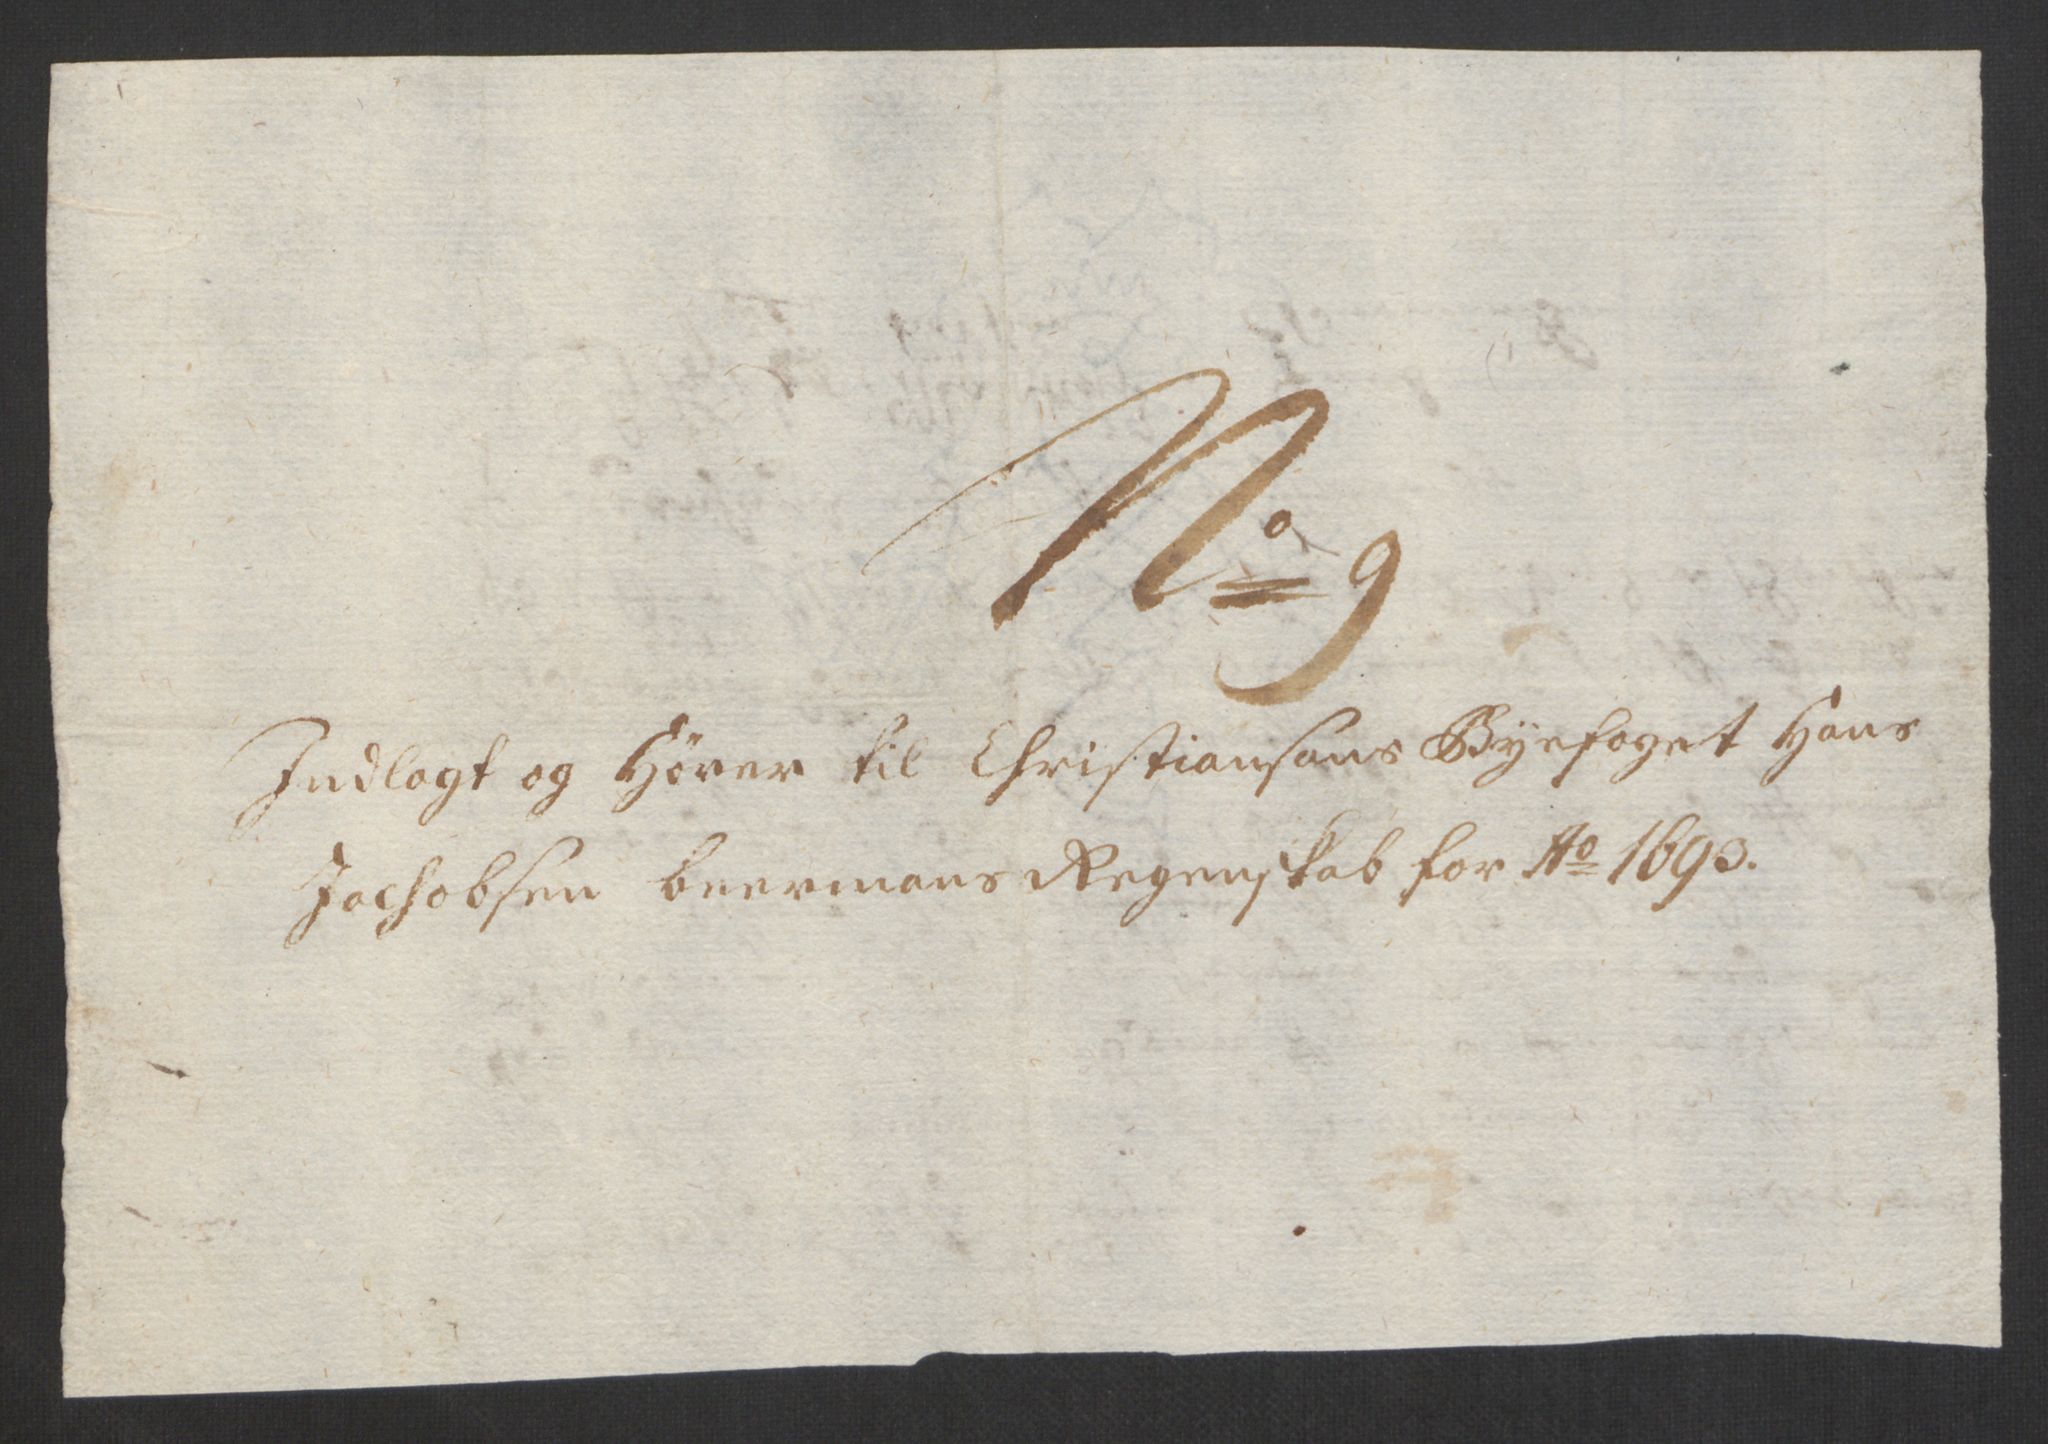 No 9
Indlagt og Hører til Christiansans Byefoget Hans
Jachobsen beermans Regenskab for Ao 1693.